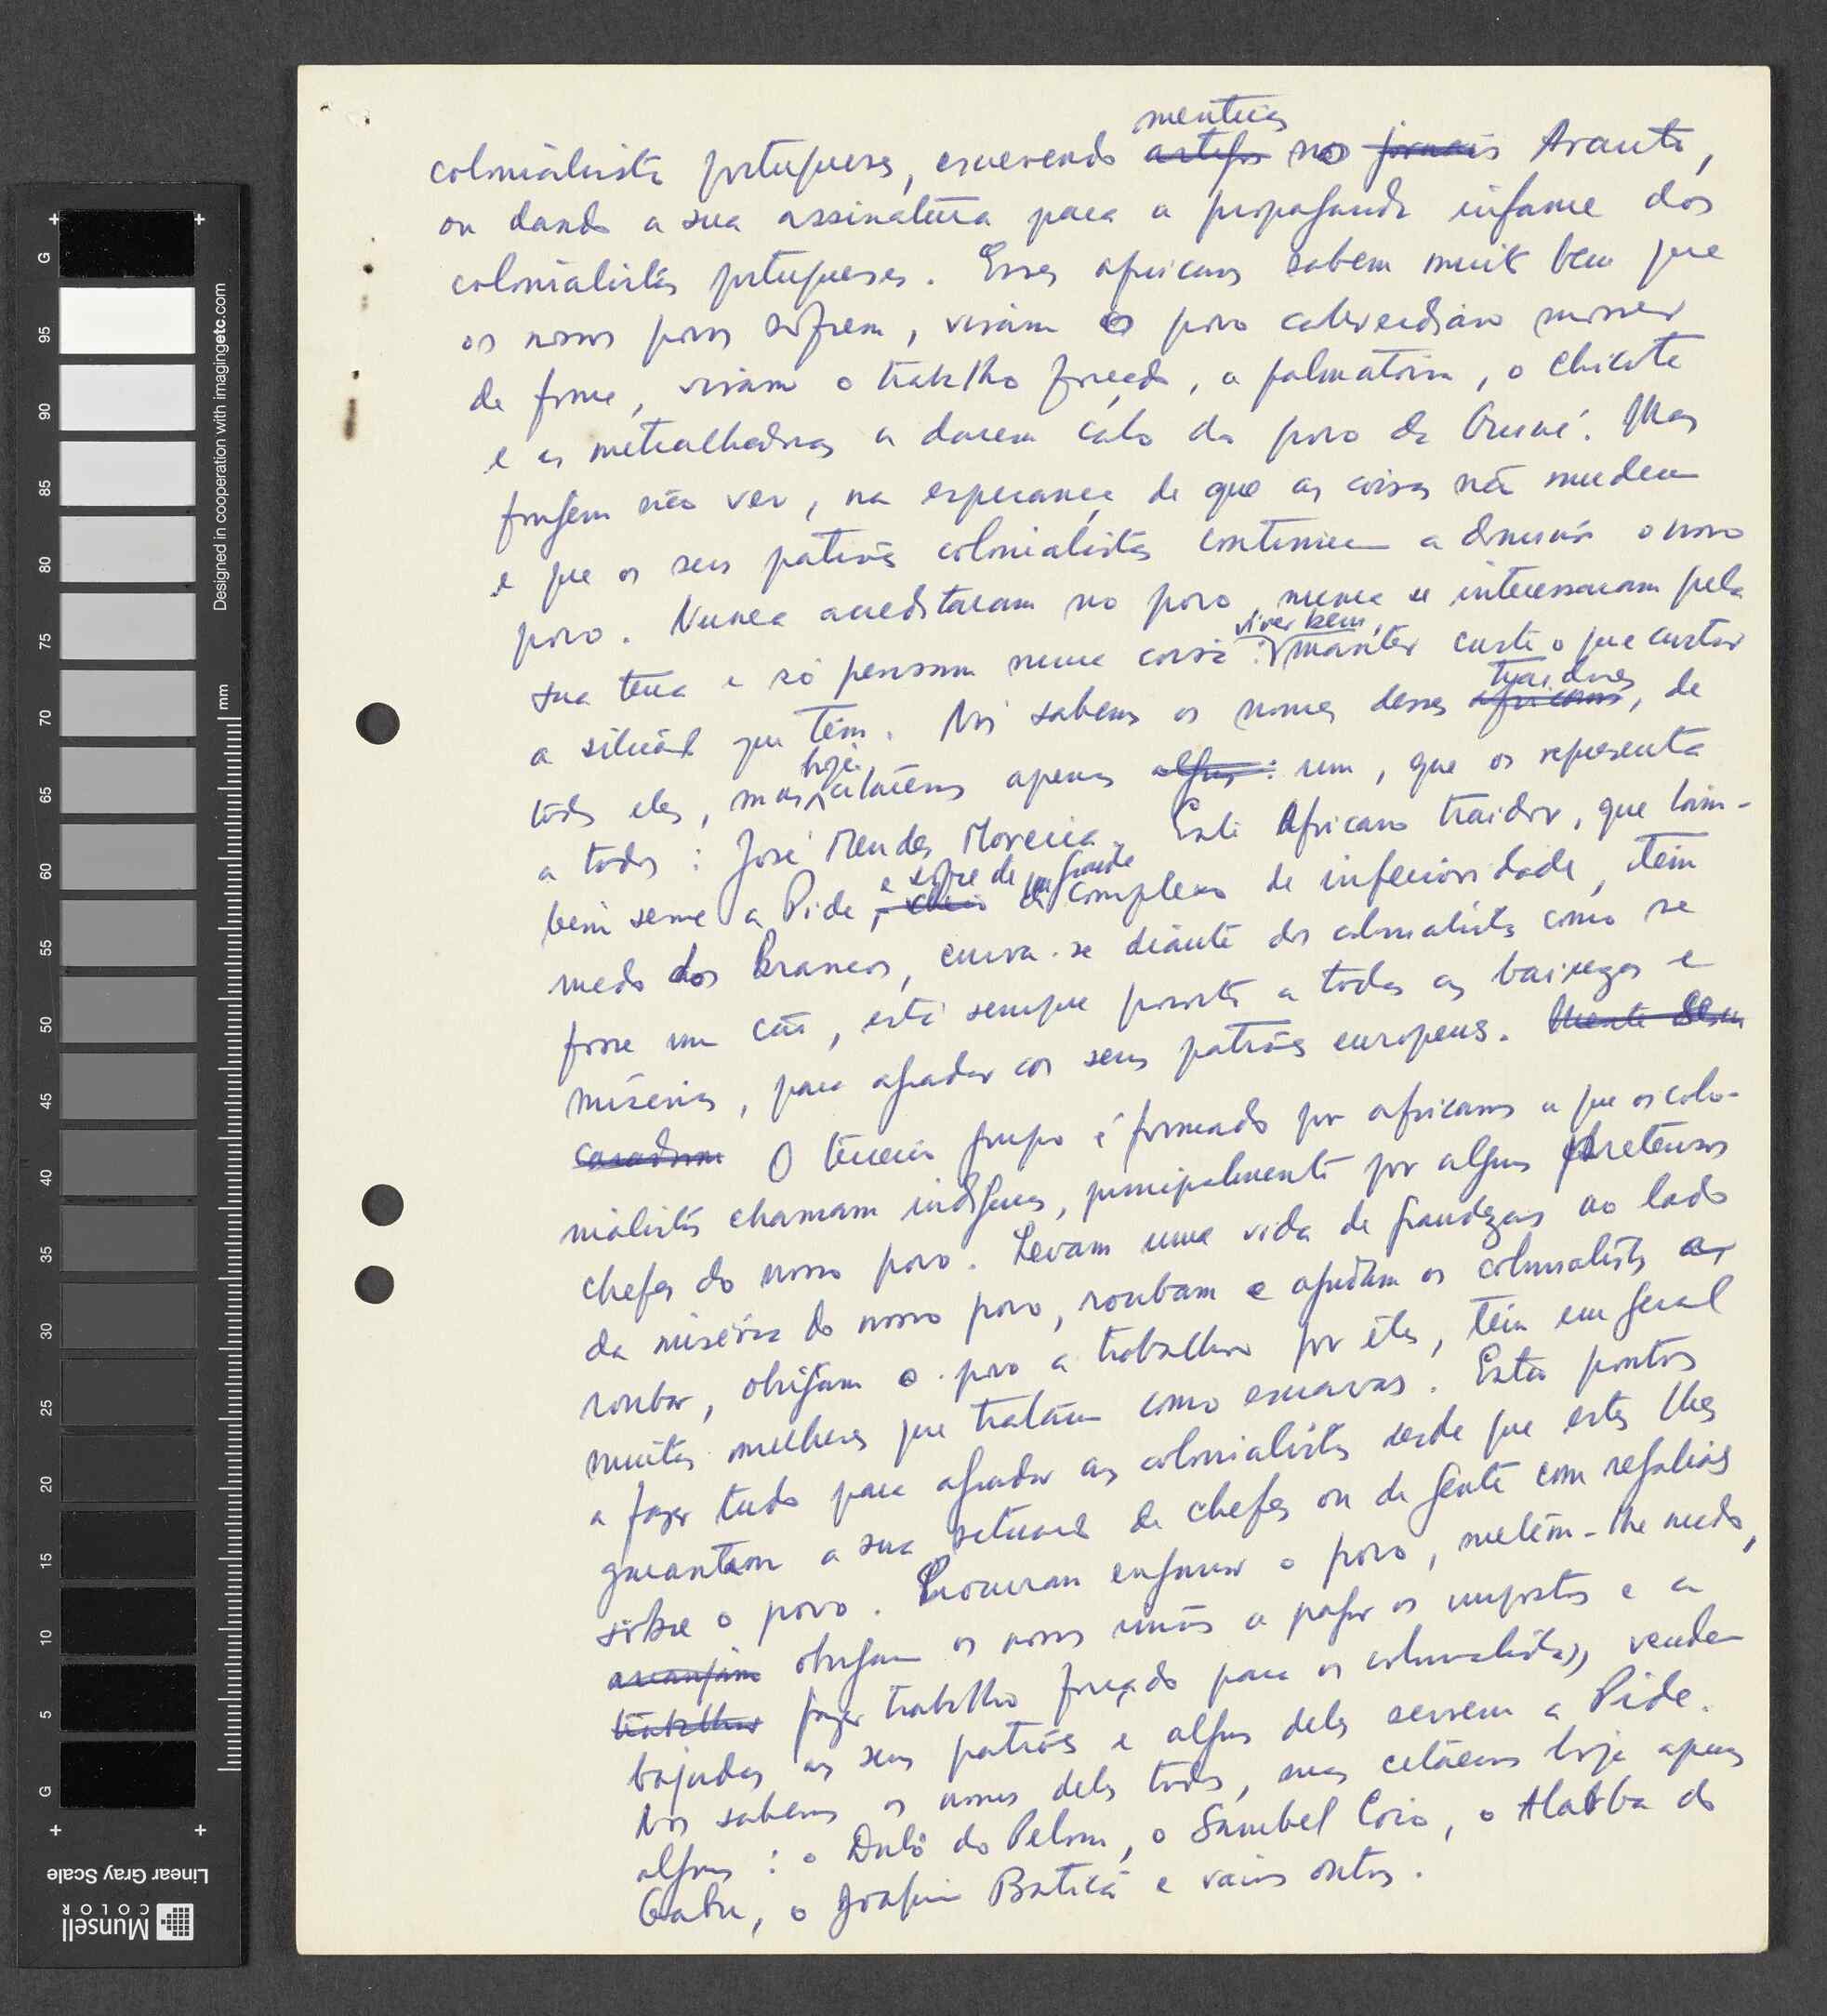 mentiras
colonialista portuguesa, escrevendo artigos no jornais Arauto,
ou dando a sua assinatura para a propaganda infame dos
colonialistas portugueses. Esses africanos sabem muito bem que
os nossos povos sofrem, viram o povo caboverdiano morrer
de fome, viram o trabalho forçado, a palmatória, o chicote
e as metralhadoras a darem cabo do povo da Guiné. Mas
fingem não ver, na esperança de que as coisas não mudem
e que os seus patrões colonialistas continuem a dominar o nosso
povo. Nunca acreditaram no povo, nunca se interessaram pela
viver bem,
sua terra e só pensam numa coisa: manter custe o que custar
traidores
a situação que têm. Nós sabemos os nomes desses africanos, de
hoje
todos eles, mas citaremos apenas alguns: um, que os representa
a todos: José Mendes Moreira. Este Africano traidor, que tam-
e sofre de um grande
bém serve a Pide, cheio de complexo de inferioridade, tem
medo dos Brancos, curva-se diante dos colonialistas como se
fosse um cão, está sempre pronto a todas as baixezas e
misérias, para agradar aos seus patrões europeus.
O terceiro grupo é formado por africanos a que os colo-
nialistas chamam indígenas, principalmente por alguns pretensos
chefes do nosso povo. Levam uma vida de grandezas ao lado
da miséria do nosso povo, roubam e ajudam os colonialistas a
roubar, obrigam o povo a trabalhar por êles, têm em geral
muitas mulheres que tratam como escravas. Estão prontos
a fazer tudo para agradar aos colonialistas desde que estes lhes
garantam a sua situação de chefes ou de gente com regalias
sôbre o povo. Procuram enganar o povo, metem-lhe medo,
arranjam obrigam os nossos irmãos a pagar os impostos e a
trabalhar fazer trabalho forçado para os colonialistas, vendem
bajudas aos seus patrões e alguns deles servem a Pide.
Nós sabemos os nomes deles todos, mas citaremos hoje apenas
alguns: o Duló do Pelom, o Sambel Coio, o Alabba do
Gabu, o Joaquim Baticã e vários outros.
G
95
90
85
80
75
70
65
60
55
50
45
40
35
30
25
20
15
10
5
G
mm
Designed in cooperation with imagingetc.com
Linear Gray Scale
Munsell
COLOR